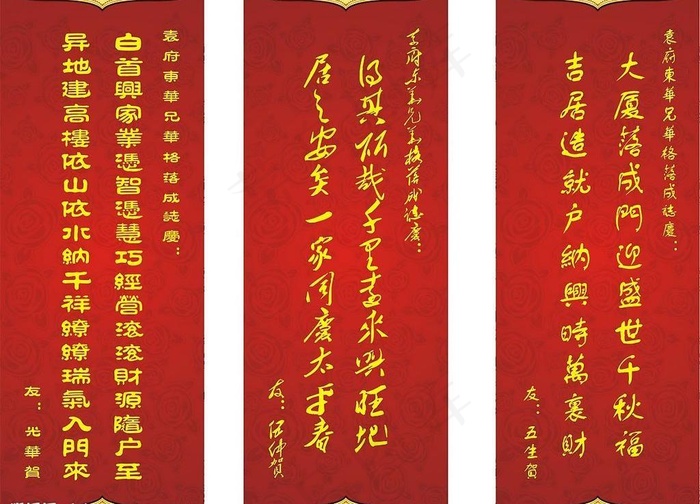 袁府東華兄華格落成誌慶：
大厦落成門迎盛世千秋福
吉居造就户納興時萬裏財
友：五生賀
袁府东華兄華格落成誌慶：
得其所哉千里喜來興旺地
居之安矣一家同慶太平春
友：伍仲賀
袁府東華兄華格落成誌慶：
白首興家業憑智憑慧巧經營滚滚財源隨户至
异地建高樓依山依水納千祥繚繚瑞氣入門來
友：光華賀